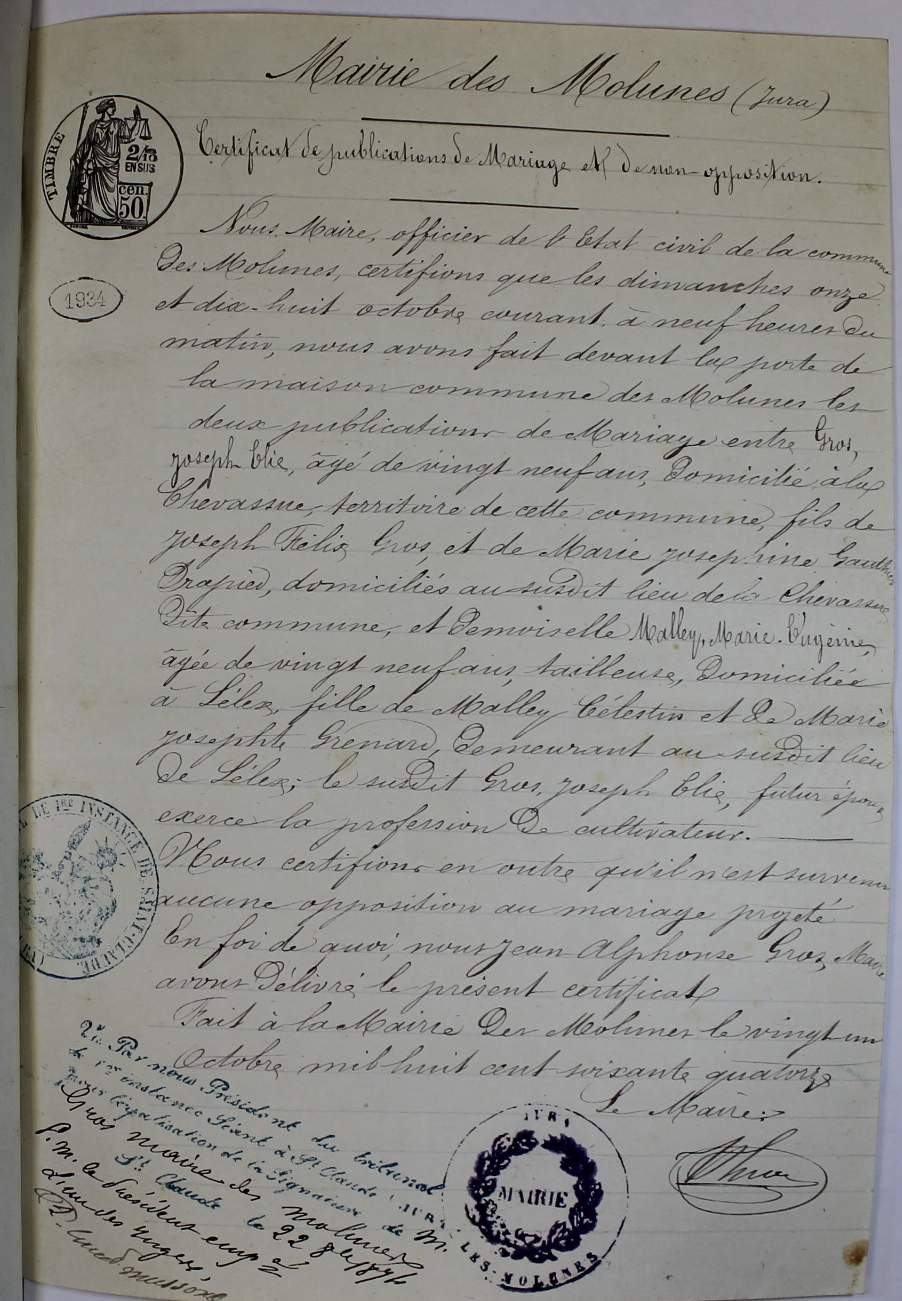 Mairie des Molunes (Jura)
TIMBRE
2/10
EN SUS
cen.
50
Certificat de publications de Mariage et de non-opposition.
Nous Maire, officier de l'Etat civil de la commune
des Molunes, certifions que les dimanches onze
1934
et dix-huit octobre courant, à neuf heures du
matin, nous avons fait devant la porte de
la maison commune des Molunes les
deux publications de Mariage entre Gros,
Joseph Elie, âgé de vingt neuf ans, Domicilié à la
Chevassue, territoire de cette commune, fils de
Joseph Félix Gros, et de Marie Josephine Gauthier
Drapied, domiciliés au susdit lieu de la Chevassue
Dite commune, et Demoiselle Malley, Marie-Eugénie,
âgée de vingt neuf ans, tailleuse, Domiciliée
à Lélex, fille de Malley Célestin et de Marie
Josephte Grenard, Demeurant au susdit lieu
de Lélex; le susdit Gros, Joseph Elie, futur époux,
exerce la profession De cultivateur.
Nous certifions en outre qu'il n'est survenu
aucune opposition au mariage projeté
En foi de quoi, nous Jean Alphonse Gros, Maire
avons Délivré le présent certificat
Fait à la Mairie Des Molunes le vingt-un
Octobre mil huit cent soixante quatorze
Le Maire:
DE 1re INSTANCE DE SAINT-CLAUDE
Vu Par nous Président du tribunal
de 1re instance Séant à St Claude (JURA
pour légalisation de la Signature de M.
Gros maire des Molunes
St Claude le 22 8bre 1874
P. M. le Président emp é
L'un des juges,
JURA
MAIRIE
LES-MOLUNES